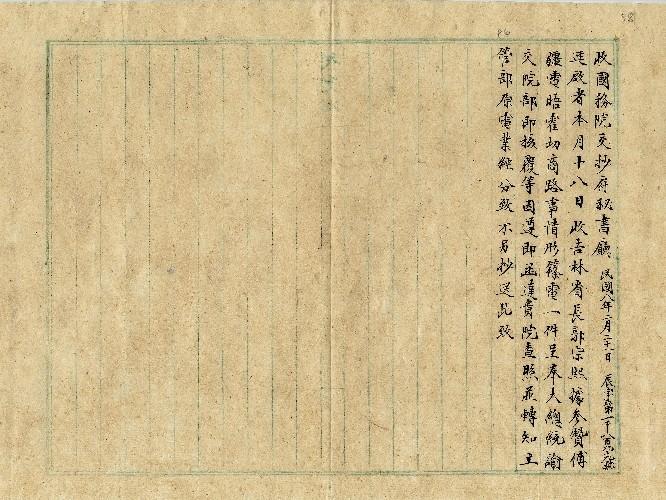 收國務院交抄府秘書廳 民國八年二月二十一日
逕啟者本月十八日收吉林省長郭宗熙據參贊傅
疆電晤霍切商路事情形篠電一件呈奉大總統諭
交院部即核覆等因遵即函達貴院查照並轉知主
管部原電業經分致不另抄送此致